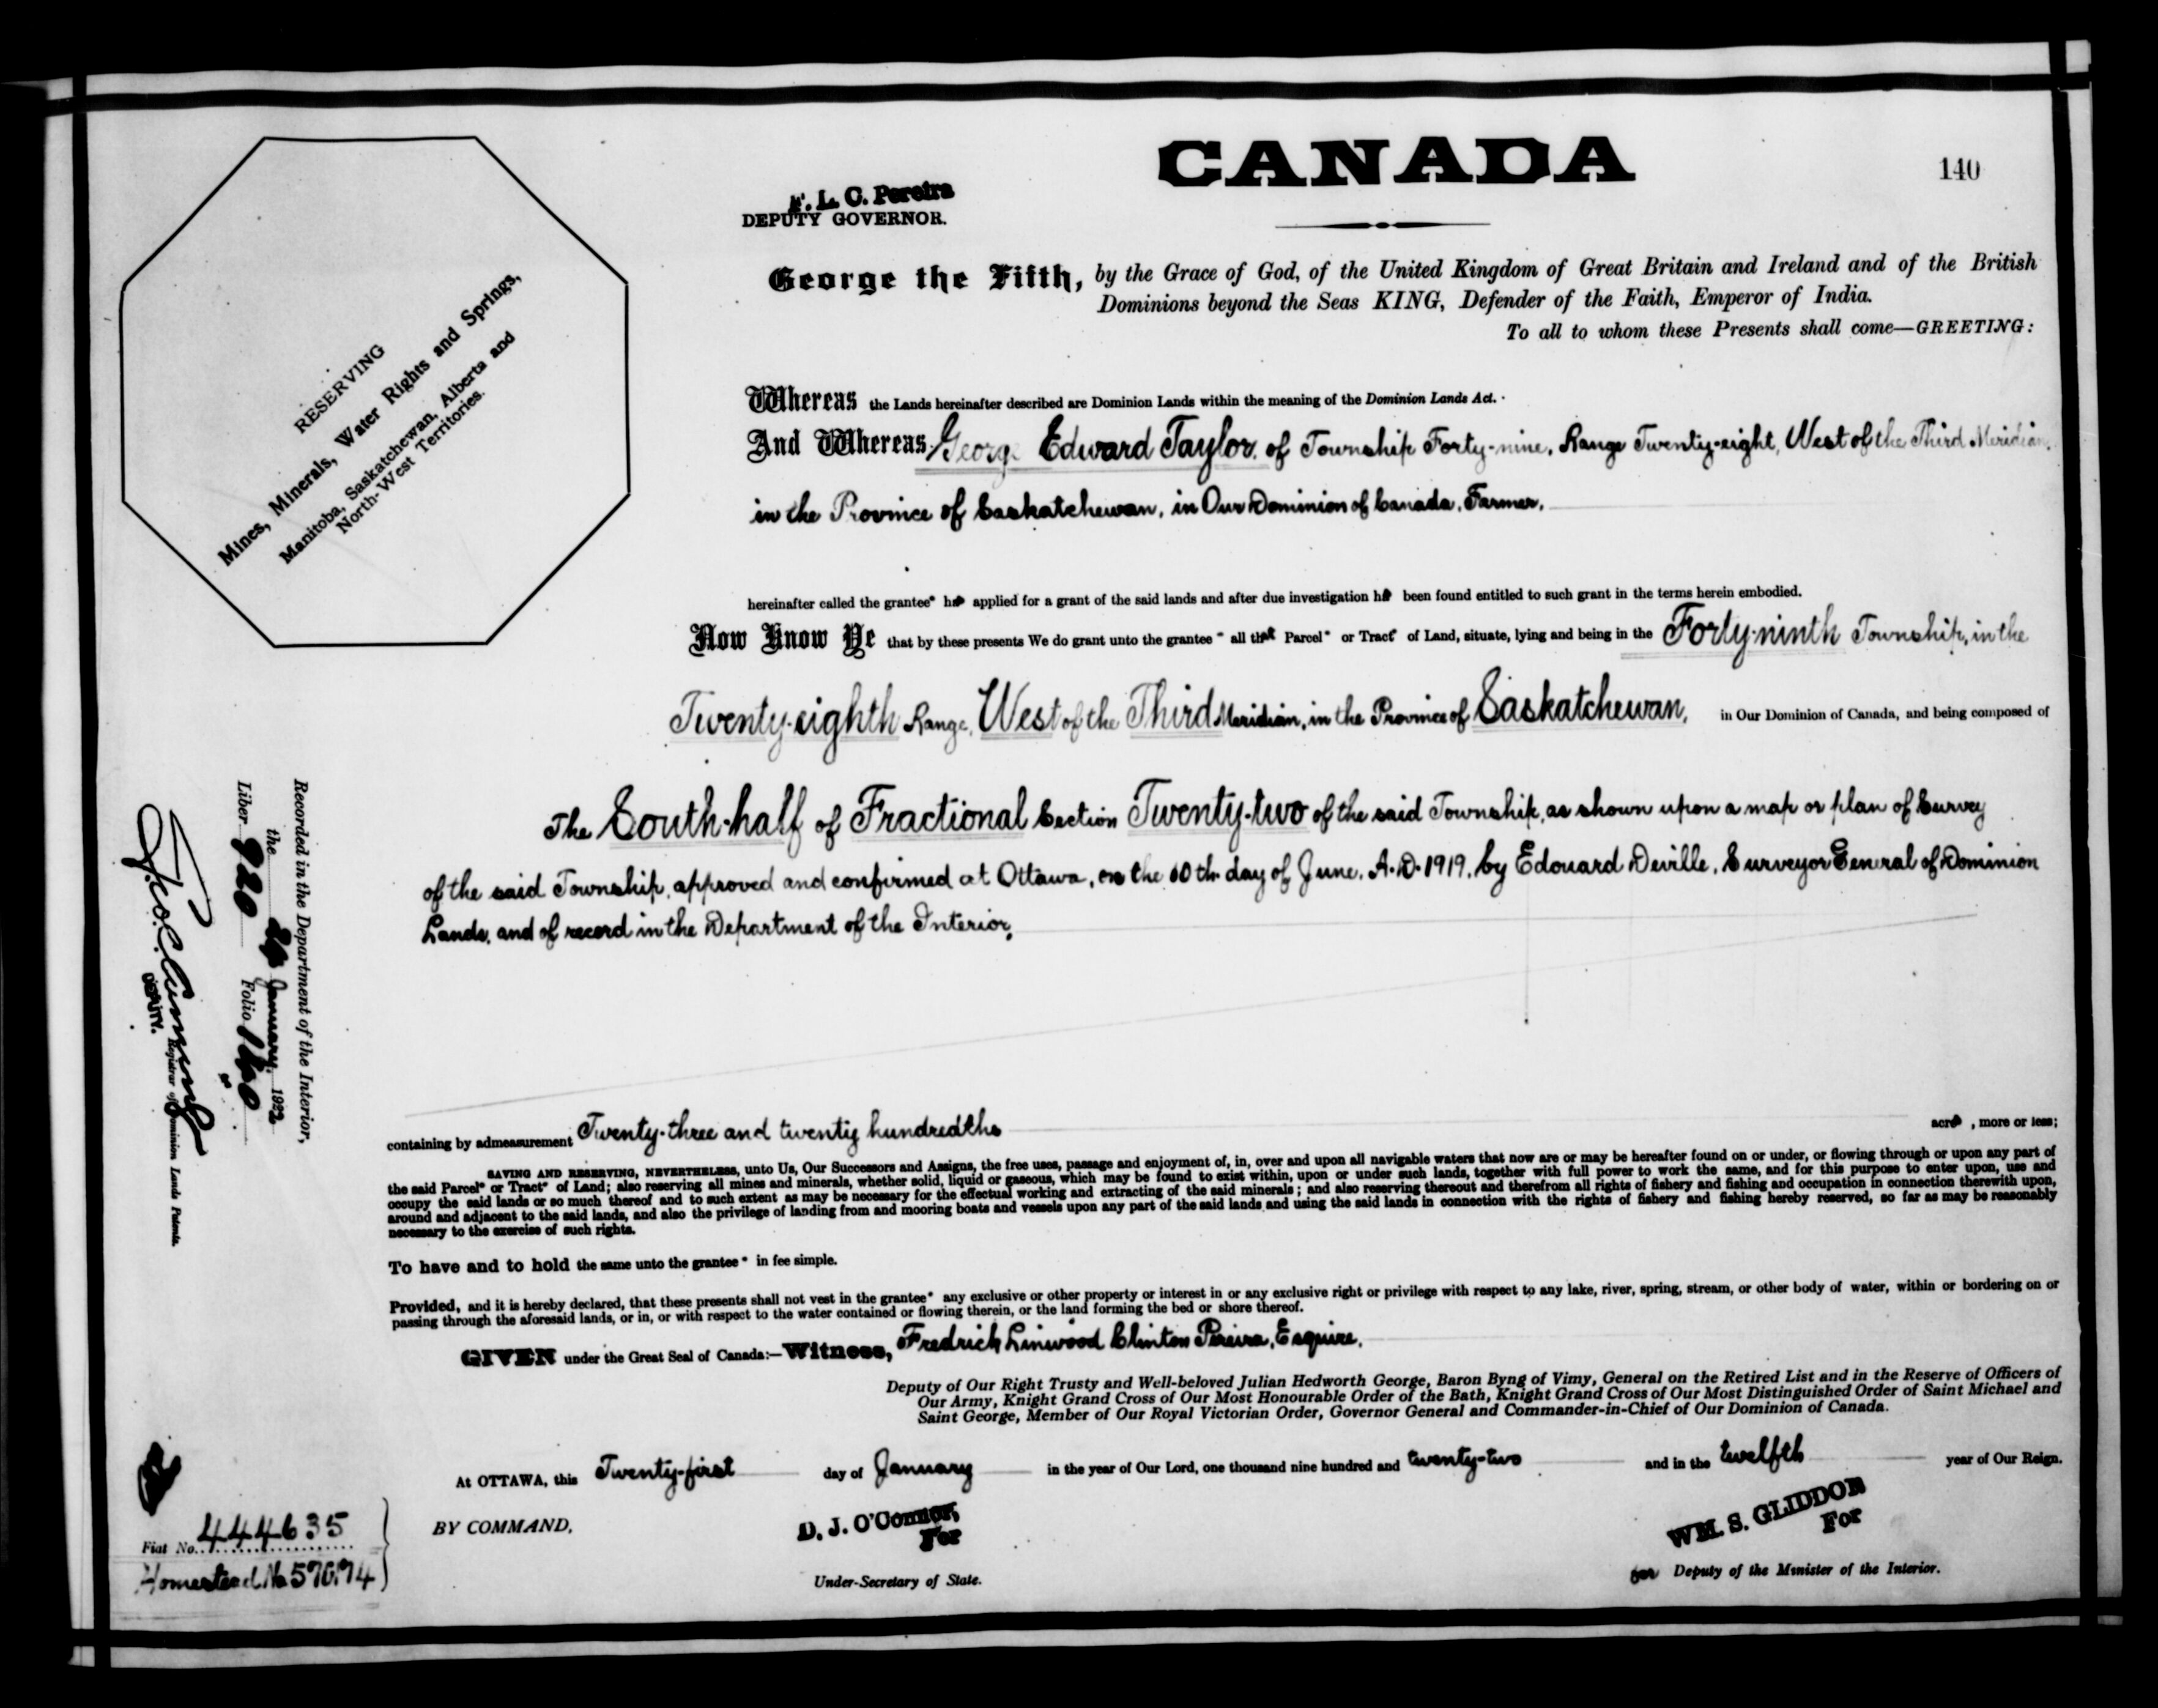 CANADA
140
F. L. C. Pereira
DEPUTY GOVERNOR.
George the Fifth, by the Grace of God, of the United Kingdom of Great Britain and Ireland and of the British
Dominions beyond the Seas KING, Defender of the Faith, Emperor of India.
To all to whom these Presents shall come—GREETING:
RESERVING
Mines, Minerals, Water Rights and Springs,
Manitoba, Saskatchewan, Alberta and
North-West Territories.
Whereas the Lands hereinafter described are Dominion Lands within the meaning of the Dominion Lands Act.
And Whereas George Edward Taylor, of Township Forty-nine, Range Twenty-eight, West of the Third Meridian,
in the Province of Saskatchewan, in Our Dominion of Canada, Farmer,
hereinafter called the grantee has applied for a grant of the said lands and after due investigation has been found entitled to such grant in the terms herein embodied.
Now Know Ye that by these presents We do grant unto the grantee all that Parcel or Tract of Land, situate, lying and being in the Forty-ninth Township, in the
Twenty-eighth Range, West of the Third Meridian, in the Province of Saskatchewan, in Our Dominion of Canada, and being composed of
The South-half of Fractional Section Twenty-two of the said Township, as shown upon a map or plan of Survey
of the said Township, approved and confirmed at Ottawa, on the 10th day of June, A.D. 1919, by Edouard Deville, Surveyor General of Dominion
Lands, and of record in the Department of the Interior,
containing by admeasurement Twenty-three and twenty hundredths acres, more or less;
SAVING AND RESERVING, NEVERTHELESS, unto Us, Our Successors and Assigns, the free uses, passage and enjoyment of, in, over and upon all navigable waters that now are or may be hereafter found on or under, or flowing through or upon any part of
the said Parcel or Tract of Land; also reserving all mines and minerals, whether solid, liquid or gaseous, which may be found to exist within, upon or under such lands, together with full power to work the same, and for this purpose to enter upon, use and
occupy the said lands or so much thereof and to such extent as may be necessary for the effectual working and extracting of the said minerals; and also reserving thereout and therefrom all rights of fishery and fishing and occupation in connection therewith upon,
around and adjacent to the said lands, and also the privilege of landing from and mooring boats and vessels upon any part of the said lands and using the said lands in connection with the rights of fishery and fishing hereby reserved, so far as may be reasonably
necessary to the exercise of such rights.
To have and to hold the same unto the grantee in fee simple.
Provided, and it is hereby declared, that these presents shall not vest in the grantee any exclusive or other property or interest in or any exclusive right or privilege with respect to any lake, river, spring, stream, or other body of water, within or bordering on or
passing through the aforesaid lands, or in, or with respect to the water contained or flowing therein, or the land forming the bed or shore thereof.
GIVEN under the Great Seal of Canada:—Witness, Fredrick Linwood Clinton Pereira, Esquire,
Deputy of Our Right Trusty and Well-beloved Julian Hedworth George, Baron Byng of Vimy, General on the Retired List and in the Reserve of Officers of
Our Army, Knight Grand Cross of Our Most Honourable Order of the Bath, Knight Grand Cross of Our Most Distinguished Order of Saint Michael and
Saint George, Member of Our Royal Victorian Order, Governor General and Commander-in-Chief of Our Dominion of Canada.
At OTTAWA, this Twenty-first day of January in the year of Our Lord, one thousand nine hundred and twenty-two and in the twelfth year of Our Reign.
BY COMMAND,
D. J. O'Connor,
For
Under-Secretary of State.
WM. S. GLIDDON
For
for Deputy of the Minister of the Interior.
Recorded in the Department of the Interior,
the January, 1922
Liber 920 Folio 140
DEPUTY. Registrar of Dominion Lands Patents.
Fiat No. 444635
Homestead No